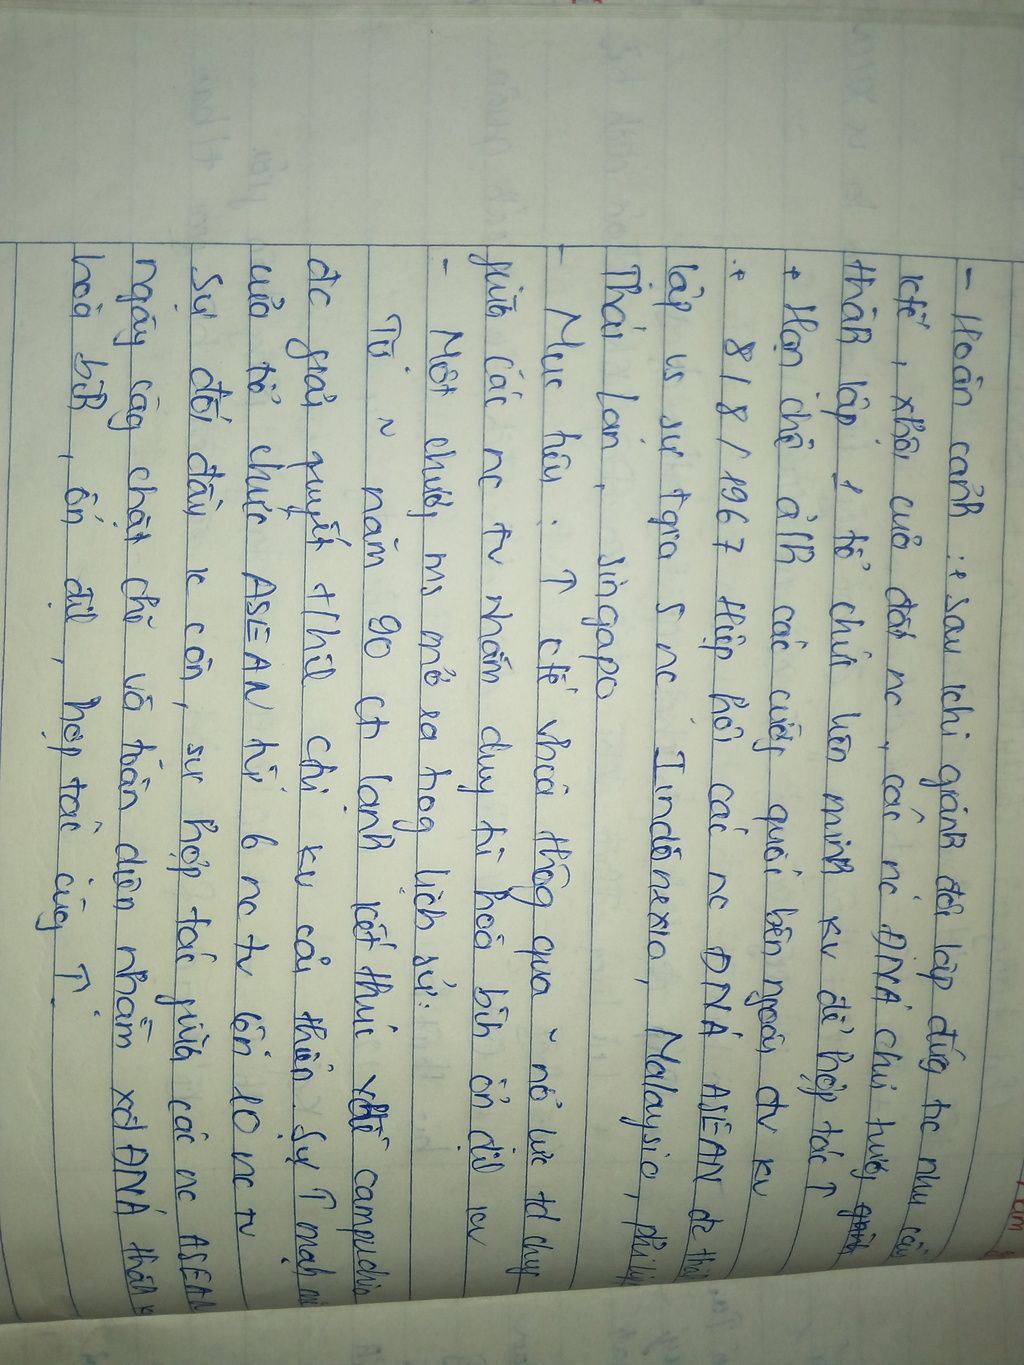 - Hoàn cảnh : + sau khi giành độc lập đứng tc nhu cầu
ktế, xhội của đất nc, các nc ĐNÁ chủ trương
thành lập 1 tổ chức liên minh kv để hợp tác ↑
+ Hạn chế a/h các cường quốc bên ngoài đv kv
+ 8/8/1967 Hiệp hội các nc ĐNÁ ASEAN đc thà
lập vs sự tgia 5 nc Inđônexia, Malaysia, phi
Thái Lan, singapo
- Mục tiêu : ↑ ktế vhoá thôg qua ~ nỗ lực td chug
giữa các nc tv nhằm duy trì hoà bìh ổn địh kv
- Một chươg ms mở ra tog lịch sử:
Từ ~ năm 90 ct lạnh kết thúc vđề campuchia
đc giải quyết t/hìh ctrị kv cải thiện. Sự ↑ mạh mẽ
của tổ chức ASEAN từ 6 nc tv lên 10 nc tv
Sự đối đầu k còn, sự hợp tác giữa các nc ASEAN
ngày càg chặt chẽ và toàn diện nhằm xd ĐNÁ thành k
hoà bìh, ổn địh, hợp tác cùng ↑.